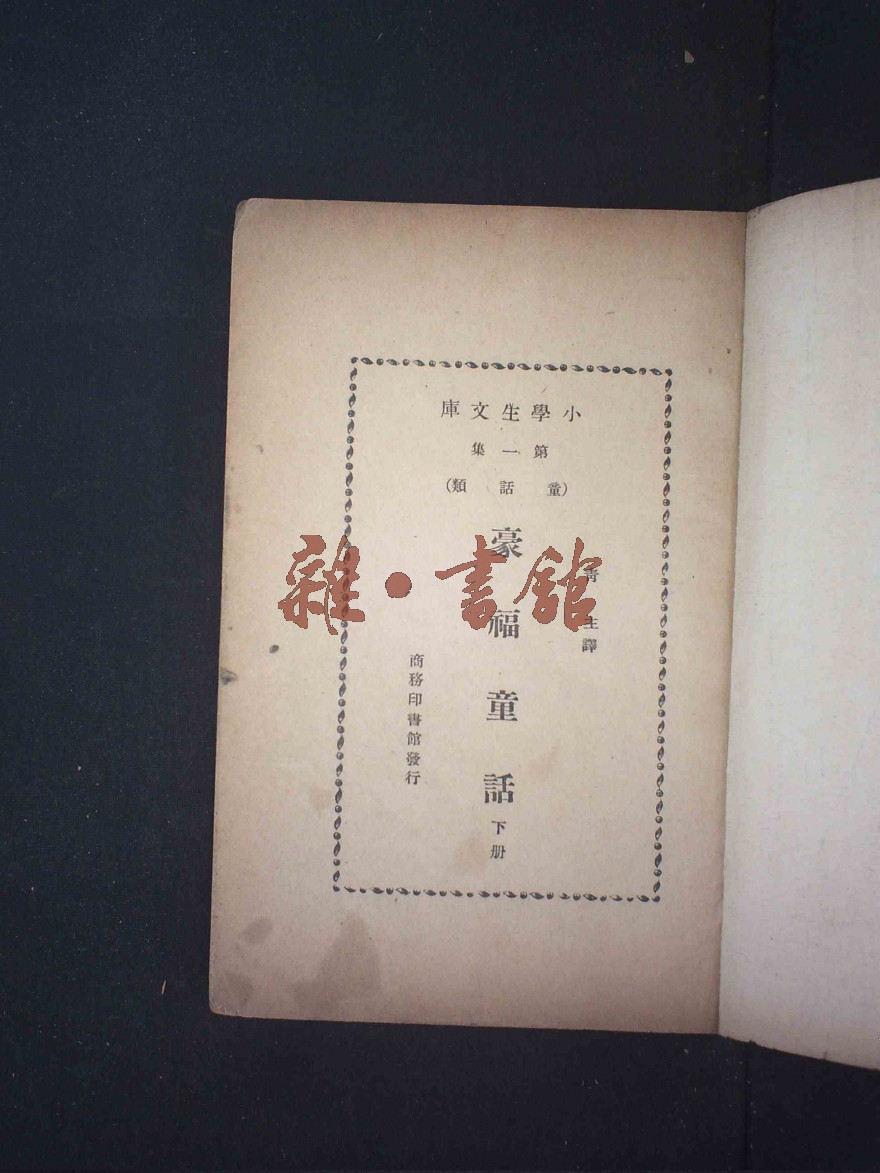 小學生文庫
第一集
(童話類)
青主譯
豪福童話 下册
商務印書館發行
雜·書館